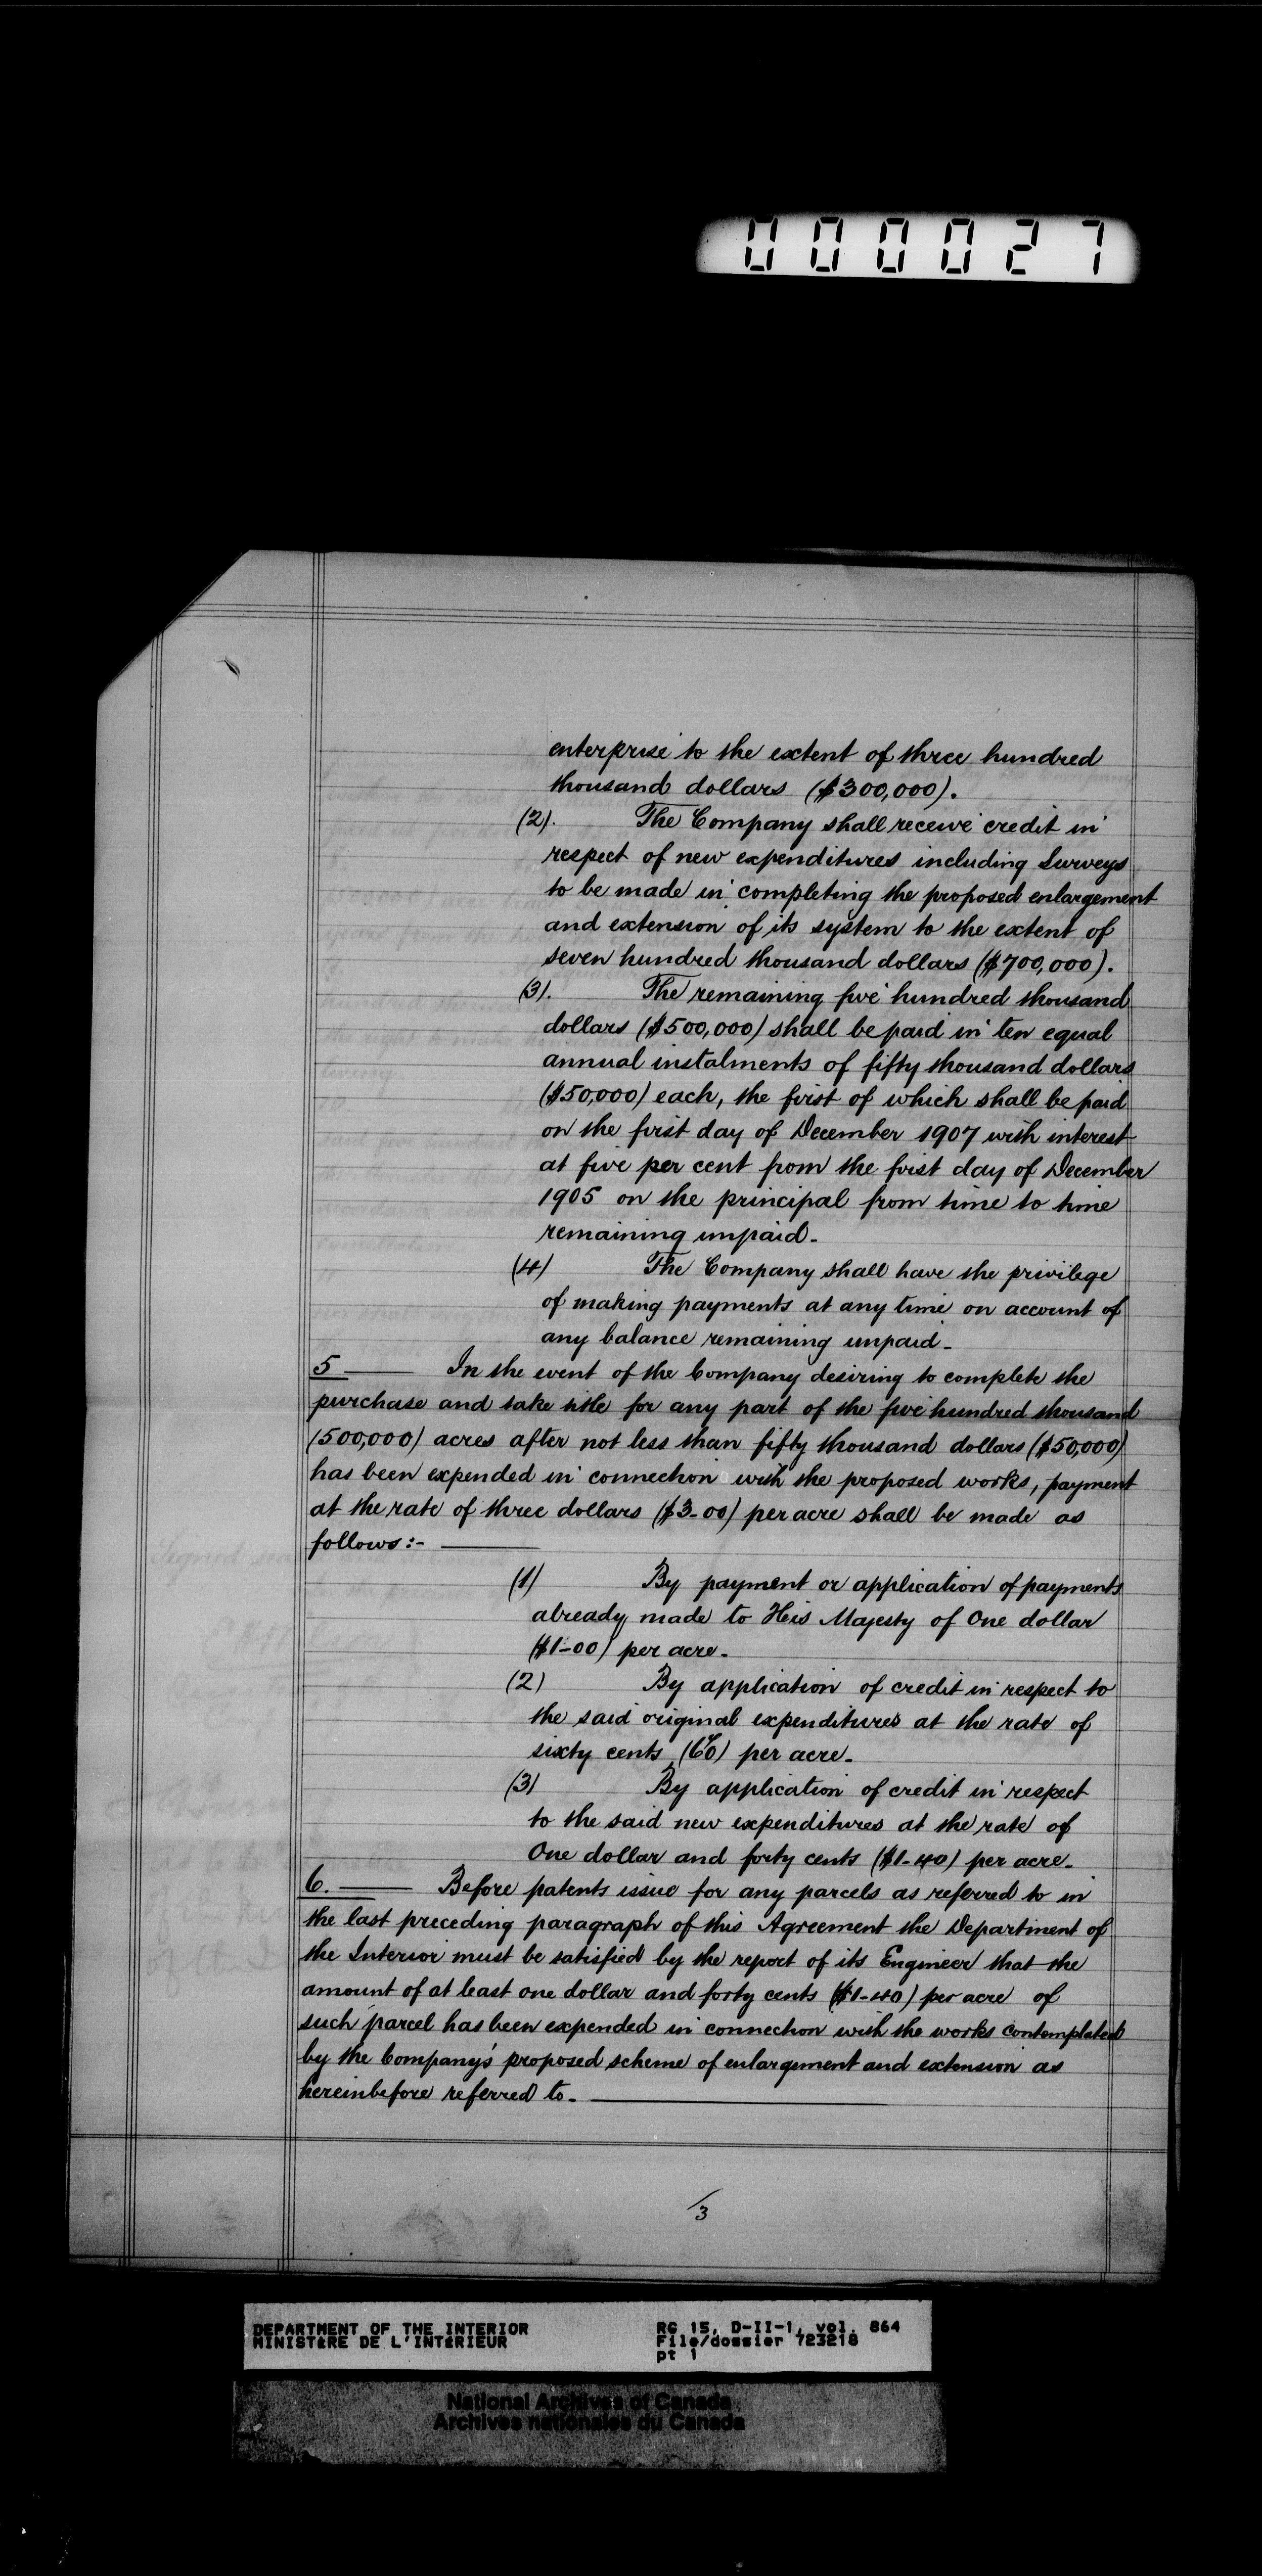 000027
enterprise to the extent of three hundred
thousand dollars ($300,000).
(2). The Company shall receive credit in
respect of new expenditures including Surveys
to be made in completing the proposed enlargement
and extension of its system to the extent of
seven hundred thousand dollars ($700,000).
(3). The remaining five hundred thousand
dollars ($500,000) shall be paid in ten equal
annual instalments of fifty thousand dollars
($50,000) each, the first of which shall be paid
on the first day of December 1907 with interest
at five per cent from the first day of December
1905 on the principal from time to time
remaining unpaid.
(4) The Company shall have the privilege
of making payments at any time on account of
any balance remaining unpaid.
5 In the event of the Company desiring to complete the
purchase and take title for any part of the five hundred thousand
(500,000) acres after not less than fifty thousand dollars ($50,000)
has been expended in connection with the proposed works, payment
at the rate of three dollars ($3-00) per acre shall be made as
follows:-
(1) By payment or application of payments
already made to His Majesty of One dollar
($1-00) per acre.
(2) By application of credit in respect to
the said original expenditures at the rate of
sixty cents (60) per acre.
(3) By application of credit in respect
to the said new expenditures at the rate of
One dollar and forty cents ($1-40) per acre.
6. Before patents issue for any parcels as referred to in
the last preceding paragraph of this Agreement the Department of
the Interior must be satisfied by the report of its Engineer that the
amount of at least one dollar and forty cents ($1-40) per acre of
such parcel has been expended in connection with the works contemplated
by the Company's proposed scheme of enlargement and extension as
hereinbefore referred to.
3
DEPARTMENT OF THE INTERIOR
MINISTÈRE DE L'INTÉRIEUR
RG 15, D-II-1, vol. 864
File/dossier 723218
pt 1
National Archives of Canada
Archives nationales du Canada